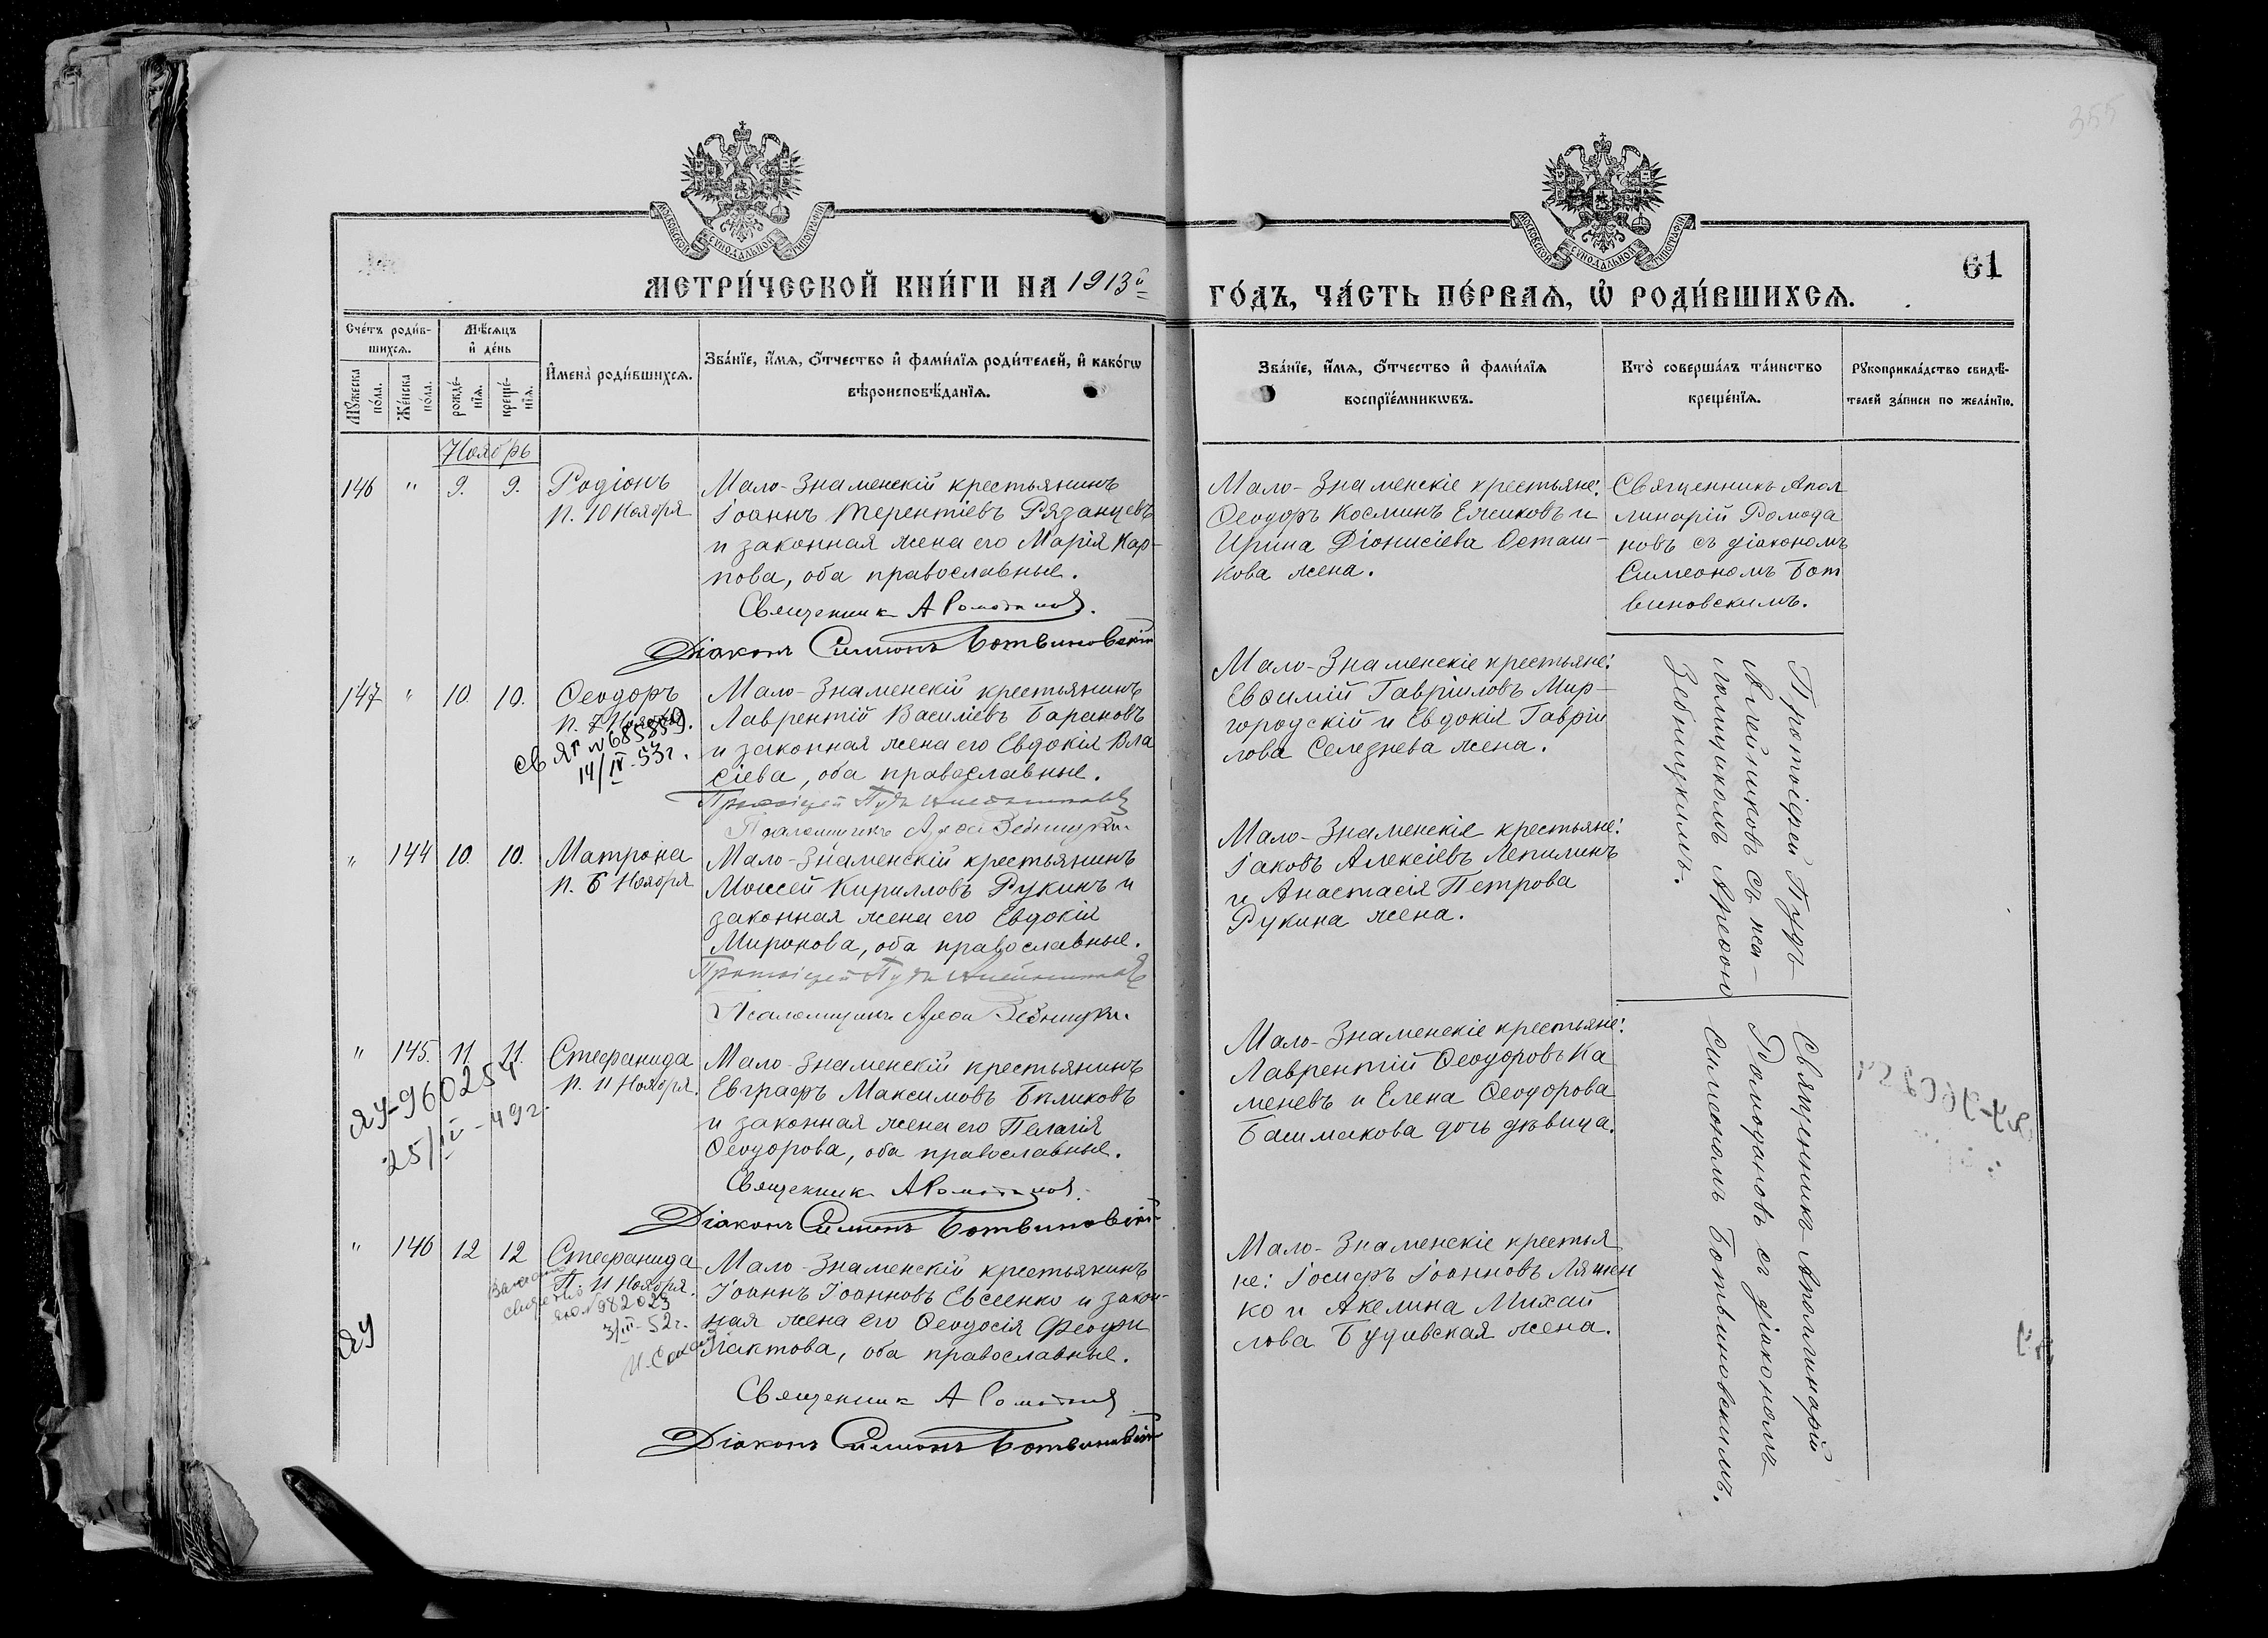 355
МОСКОВСКОЙ СѴНОДАЛЬНОЙ ТИПОГРАФІИ
МОСКОВСКОЙ СѴНОДАЛЬНОЙ ТИПОГРАФІИ
61
МЕТРИ́ЧЕСКОЙ КНИ́ГИ НА 1913й
ГО́ДЪ, ЧА́СТЬ ПЕ́РВАѦ, Ѽ РОДИ́ВШИХСѦ.
Сче́тъ роди́в-
шихсѧ.
Мѣ́сѧцъ
и҆ де́нь
Мꙋ́жеска по́ла.
Же́нска по́ла.
рожде́-
нїѧ.
креще́-
нїѧ.
И҆мена̀ роди́вшихсѧ.
Зва́нїе, и҆́мѧ, ѻ҆́тчество и҆ фами́лїѧ роди́телей, и҆ како́гѡ
вѣроисповѣ́данїѧ.
Зва́нїе, и҆́мѧ, ѻ҆́тчество и҆ фами́лїѧ
воспрїе́мникѡвъ.
Кто̀ соверша́лъ та́инство
креще́нїѧ.
Рꙋкоприкла́дство свидѣ́-
телей за́писи по жела́нїю.
Ноябрь
146 " 9. 9. Родіонъ
п. 10 Ноября
Мало-Знаменскій крестьянинъ
Іоаннъ Терентіевъ Рязанцевъ
и законная жена его Марія Кар-
пова, оба православные.
Священникъ А Ромодановъ.
Діаконъ Симеонъ Ботвиновскій
Мало-Знаменскіе крестьяне:
Ѳеодоръ Косминъ Ежиковъ и
Ирина Діонисіева Осташ-
кова жена.
Священникъ Апол
линарій Ромода
новъ съ діакономъ
Симеономъ Бот
виновскимъ.
147 " 10. 10. Ѳеодоръ
п. Ноября.
св ЯГ №685859
14/IV-53г.
Мало-Знаменскій крестьянинъ
Лаврентій Василіевъ Барановъ
и законная жена его Евдокія Вла
сіева, оба православные.
Протоіерей Пудъ Алейниковъ
Псаломщикъ Зебницкій
Мало-Знаменскіе крестьяне:
Евѳимій Гавріиловъ Мир-
городскій и Евдокія Гавріи
лова Селезнева жена.
Протоіерей Пудъ
Алейниковъ съ пса-
ломщикомъ Ареѳою
Зебницкимъ.
" 144 10. 10. Матрона
п. 6 Ноября
Мало-Знаменскій крестьянинъ
Моисей Кирилловъ Рукинъ и
законная жена его Евдокія
Миронова, оба православные.
Протоіерей Пудъ Алейниковъ
Псаломщикъ Зебницкій
Мало-Знаменскіе крестьяне:
Іаковъ Алексіевъ Лепилинъ
и Анастасія Петрова
Рукина жена.
" 145. 11. 11. Стефанида
п. 11 Ноября.
ЯУ-960254
25/IV-49г.
Мало-Знаменскій крестьянинъ
Евграфъ Максимовъ Бѣликовъ
и законная жена его Пелагія
Ѳеодорова, оба православные.
Священникъ А Ромодановъ.
Діаконъ Симеонъ Ботвиновскій
Мало-Знаменскіе крестьяне:
Лаврентій Ѳеодоровъ Ка
меневъ и Елена Ѳеодорова
Башмакова дочь дѣвица.
Священникъ Аполлинарій
Ромодановъ съ діакономъ
Симеономъ Ботвиновскимъ.
" 146 12 12 Стефанида
П. 11 Ноября.
№982023
3/III-52г.
ЯУ
Мало-Знаменскій крестьянинъ
Іоаннъ Іоанновъ Евсеенко и закон-
ная жена его Ѳеодосія Феофи
лактова, оба православные.
Священникъ А Ромодановъ
Діаконъ Симеонъ Ботвиновскій
Мало-Знаменскіе крестья
не: Іосифъ Іоанновъ Ляшен
ко и Акелина Михай
лова Будивская жена.